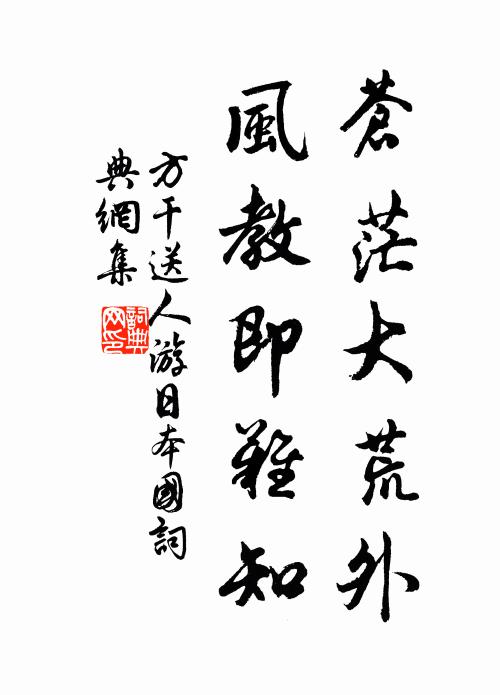 蒼茫大荒外
風教即難知
方干送人游日本國詞
典網集
詞典
网印